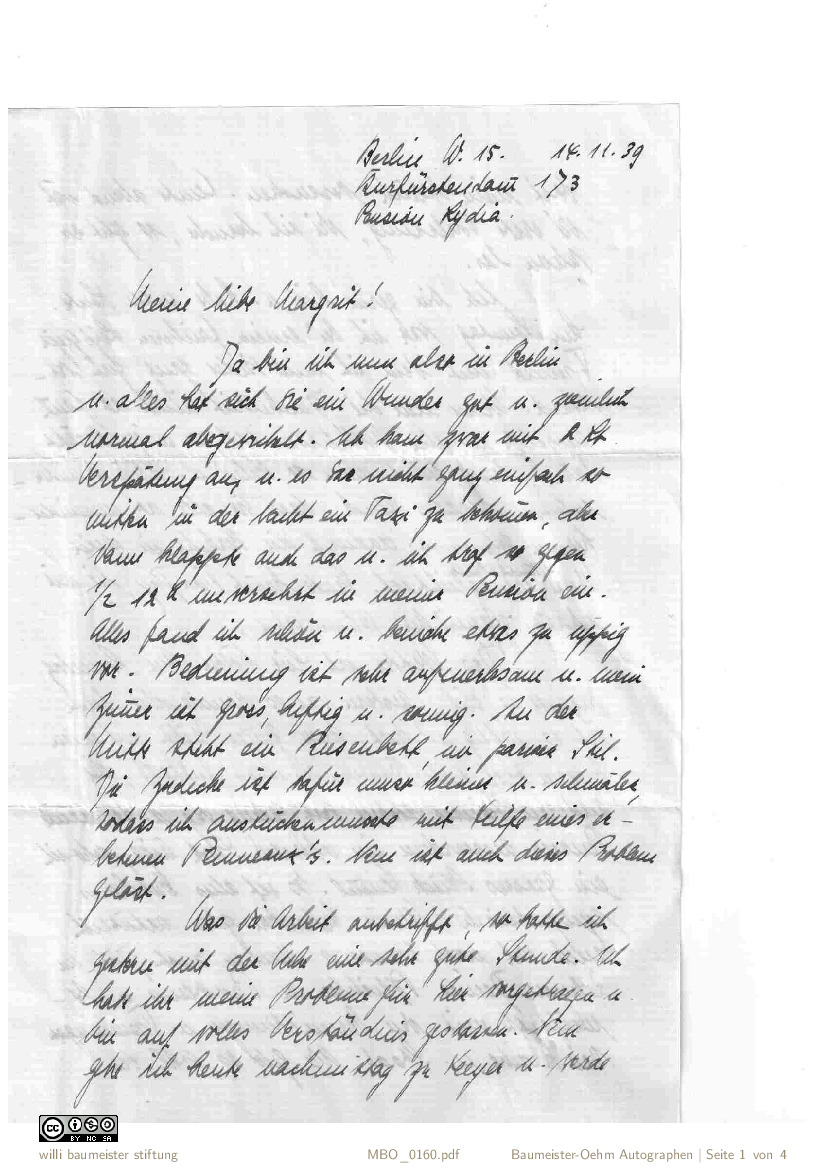 Berlin W. 15. 14.11.39
Kurfürstendam̅ 173
Pension Lydia.
Meine liebe Margrit!
Da bin ich nun also in Berlin
u. alles hat sich wie ein Wunder gut u. ziemlich
normal abgewickelt. Ich kam zwar mit 2 St
Verspätung an, u. es war nicht ganz einfach so
mitten in der Nacht ein Taxi zu bekom̅en, aber
dann klappte auch das u. ich traf so gegen
1/2 12 h unversehrt in meiner Pension ein.
Alles fand ich schön u. beinahe etwas zu üppig
vor. Bedienung ist sehr aufmerksam u. mein
Zim̅er ist gross, luftig u. sonnig. In der
Mitte steht ein Riesenbett, im pariser Stil.
Die Zudecke ist dafür umso kleiner u. schmäler,
sodass ich anstücken musste mit Hilfe eines er-
betenen Plumeaux's. Nun ist auch dieses Problem
gelöst.
Was die Arbeit anbetrifft, so hatte ich
gestern mit der eine sehr gute Stunde. Ich
habe ihr meine Probleme für hier vorgetragen u.
bin auf volles Verständnis gestossen. Nun
gehe ich heute nachmittag zu u. werde
willi baumeister stiftung MBO_0160.pdf Baumeister-Oehm Autographen | Seite 1 von 4
CC BY NC SA